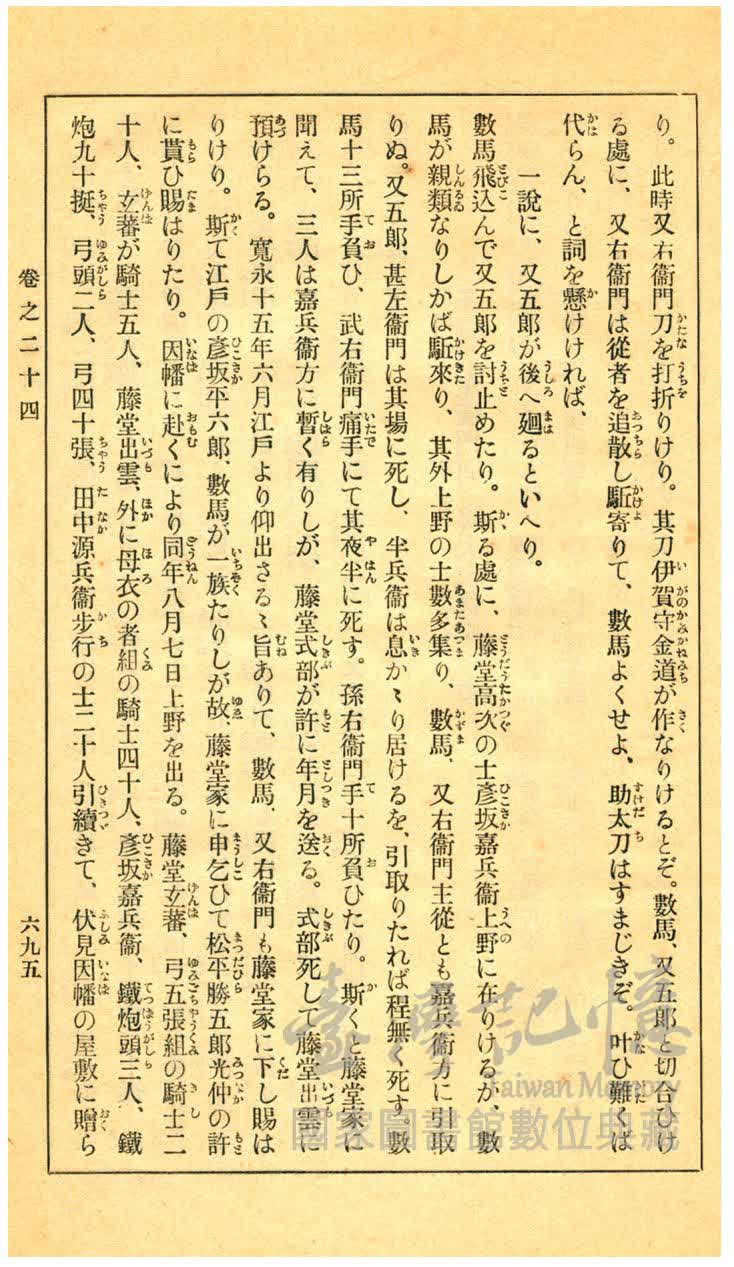 り。此時又右衞門刀を打折りけり。其刀伊賀守金道が作なりけるとぞ。數馬、又五郎と切合ひけ
る處に、又右衞門は從者を追散し駈寄りて、數馬よくせよ、助太刀はすまじきぞ。叶ひ難くば
代らん、と詞を懸けければ、
一說に、又五郎が後へ廻るといへり。
數馬飛込んで又五郎を討止めたり。斯る處に、藤堂高次の士彥坂嘉兵衞上野に在りけるが、數
馬が親類なりしかば駈來り、其外上野の士數多集り、數馬、又右衞門主從とも嘉兵衞方に引取
りぬ。又五郎、甚左衞門は其場に死し、半兵衞は息かゝり居けるを、引取りたれば程無く死す。數
馬十三所手負ひ、武右衞門痛手にて其夜半に死す。孫右衞門手十所負ひたり。斯くと藤堂家に
聞えて、三人は嘉兵衞方に暫く有りしが、藤堂式部が許に年月を送る。式部死して藤堂出雲に
預けらる。寬永十五年六月江戶より仰出さるゝ旨ありて、數馬、又右衞門も藤堂家に下し賜は
りけり。斯て江戶の彥坂平六郎、數馬が一族たりしが故、藤堂家に申乞ひて松平勝五郎光仲の許
に貰ひ賜はりたり。因幡に赴くにより同年八月七日上野を出る。藤堂玄蕃、弓五張組の騎士二
十人、玄蕃が騎士五人、藤堂出雲、外に母衣の者組の騎士四十人、彥坂嘉兵衞、鐵炮頭三人、鐵
炮九十挺、弓頭二人、弓四十張、田中源兵衞步行の士二十人引續きて、伏見因幡の屋敷に贈ら
卷之二十四
六九五
臺灣記憶
Taiwan Memory
國家圖書館數位典藏